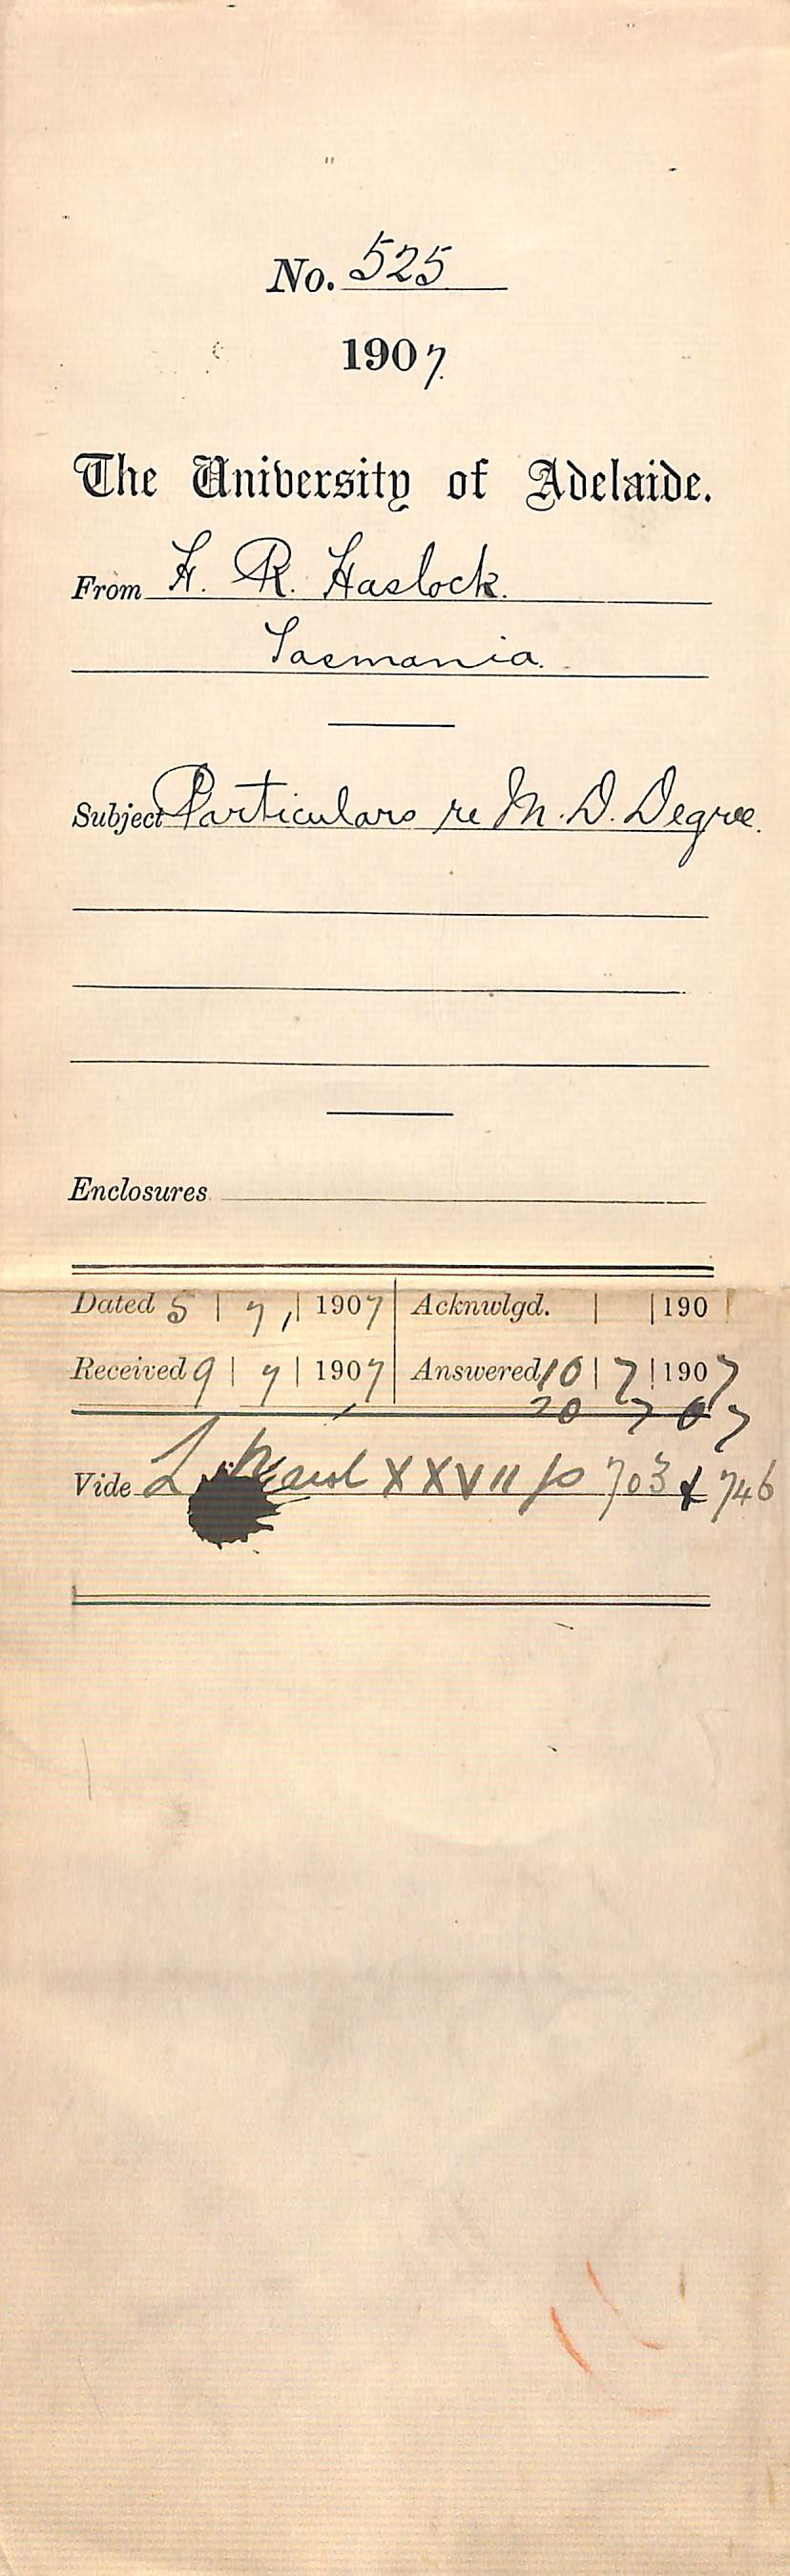 No. 525
1907.
The University of Adelaide.
From H. R. Haslock.
Tasmania.
Subject Particulars re M.D. Degree.
Enclosures
Dated 5 | 7 | 1907 Acknwlgd. | | 190
Received 9 | 7 | 1907 Answered 10 | 7 | 1907
20 7 07
Vide XXVII p 703 & 746